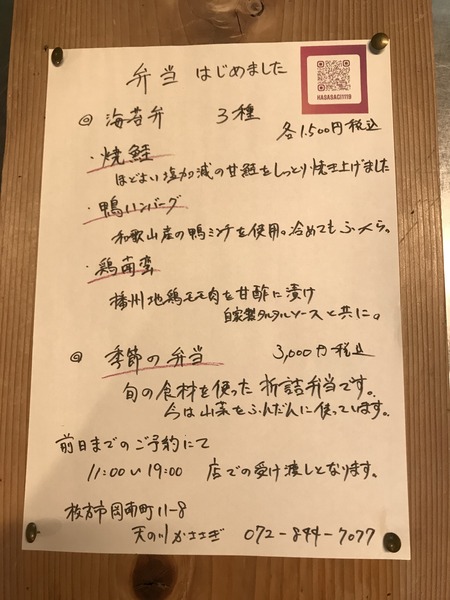 弁当 はじめました
HASASAGI1119
◎ 海苔弁 3種
各1.500円税込
・焼鮭
ほどよい塩加減の甘鮭をしっとり焼き上げました
・鴨ハンバーグ
和歌山産の鴨ミンチを使用。冷めてもふっくら。
・鶏南蛮
播州地鶏モモ肉を甘酢に漬け
自家製タルタルソースと共に。
◎ 季節の弁当 3,000円税込
旬の食材を使った折詰弁当です。
今は山菜をふんだんに使っています。
前日までのご予約にて
11:00〜19:00 店での受け渡しとなります。
枚方市岡南町11-8
天の川かささぎ 072-844-7077